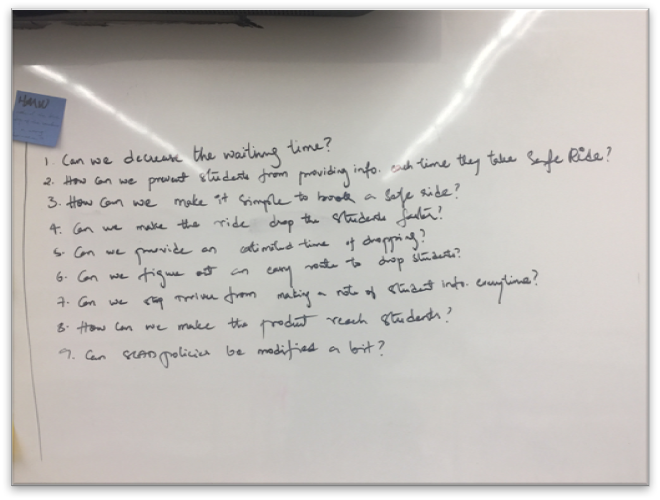 HMW
1. Can we decrease the waiting time?
2. How can we prevent students from providing info. each time they take Safe Ride?
3. How can we make it simple to book a safe ride?
4. Can we make the ride drop the students faster?
5. Can we provide an estimated time of dropping?
6. Can we figure out an easy route to drop students?
7. Can we stop from making a note of student info. everytime?
8. How can we make the product reach students?
9. Can SCAD policies be modified a bit?